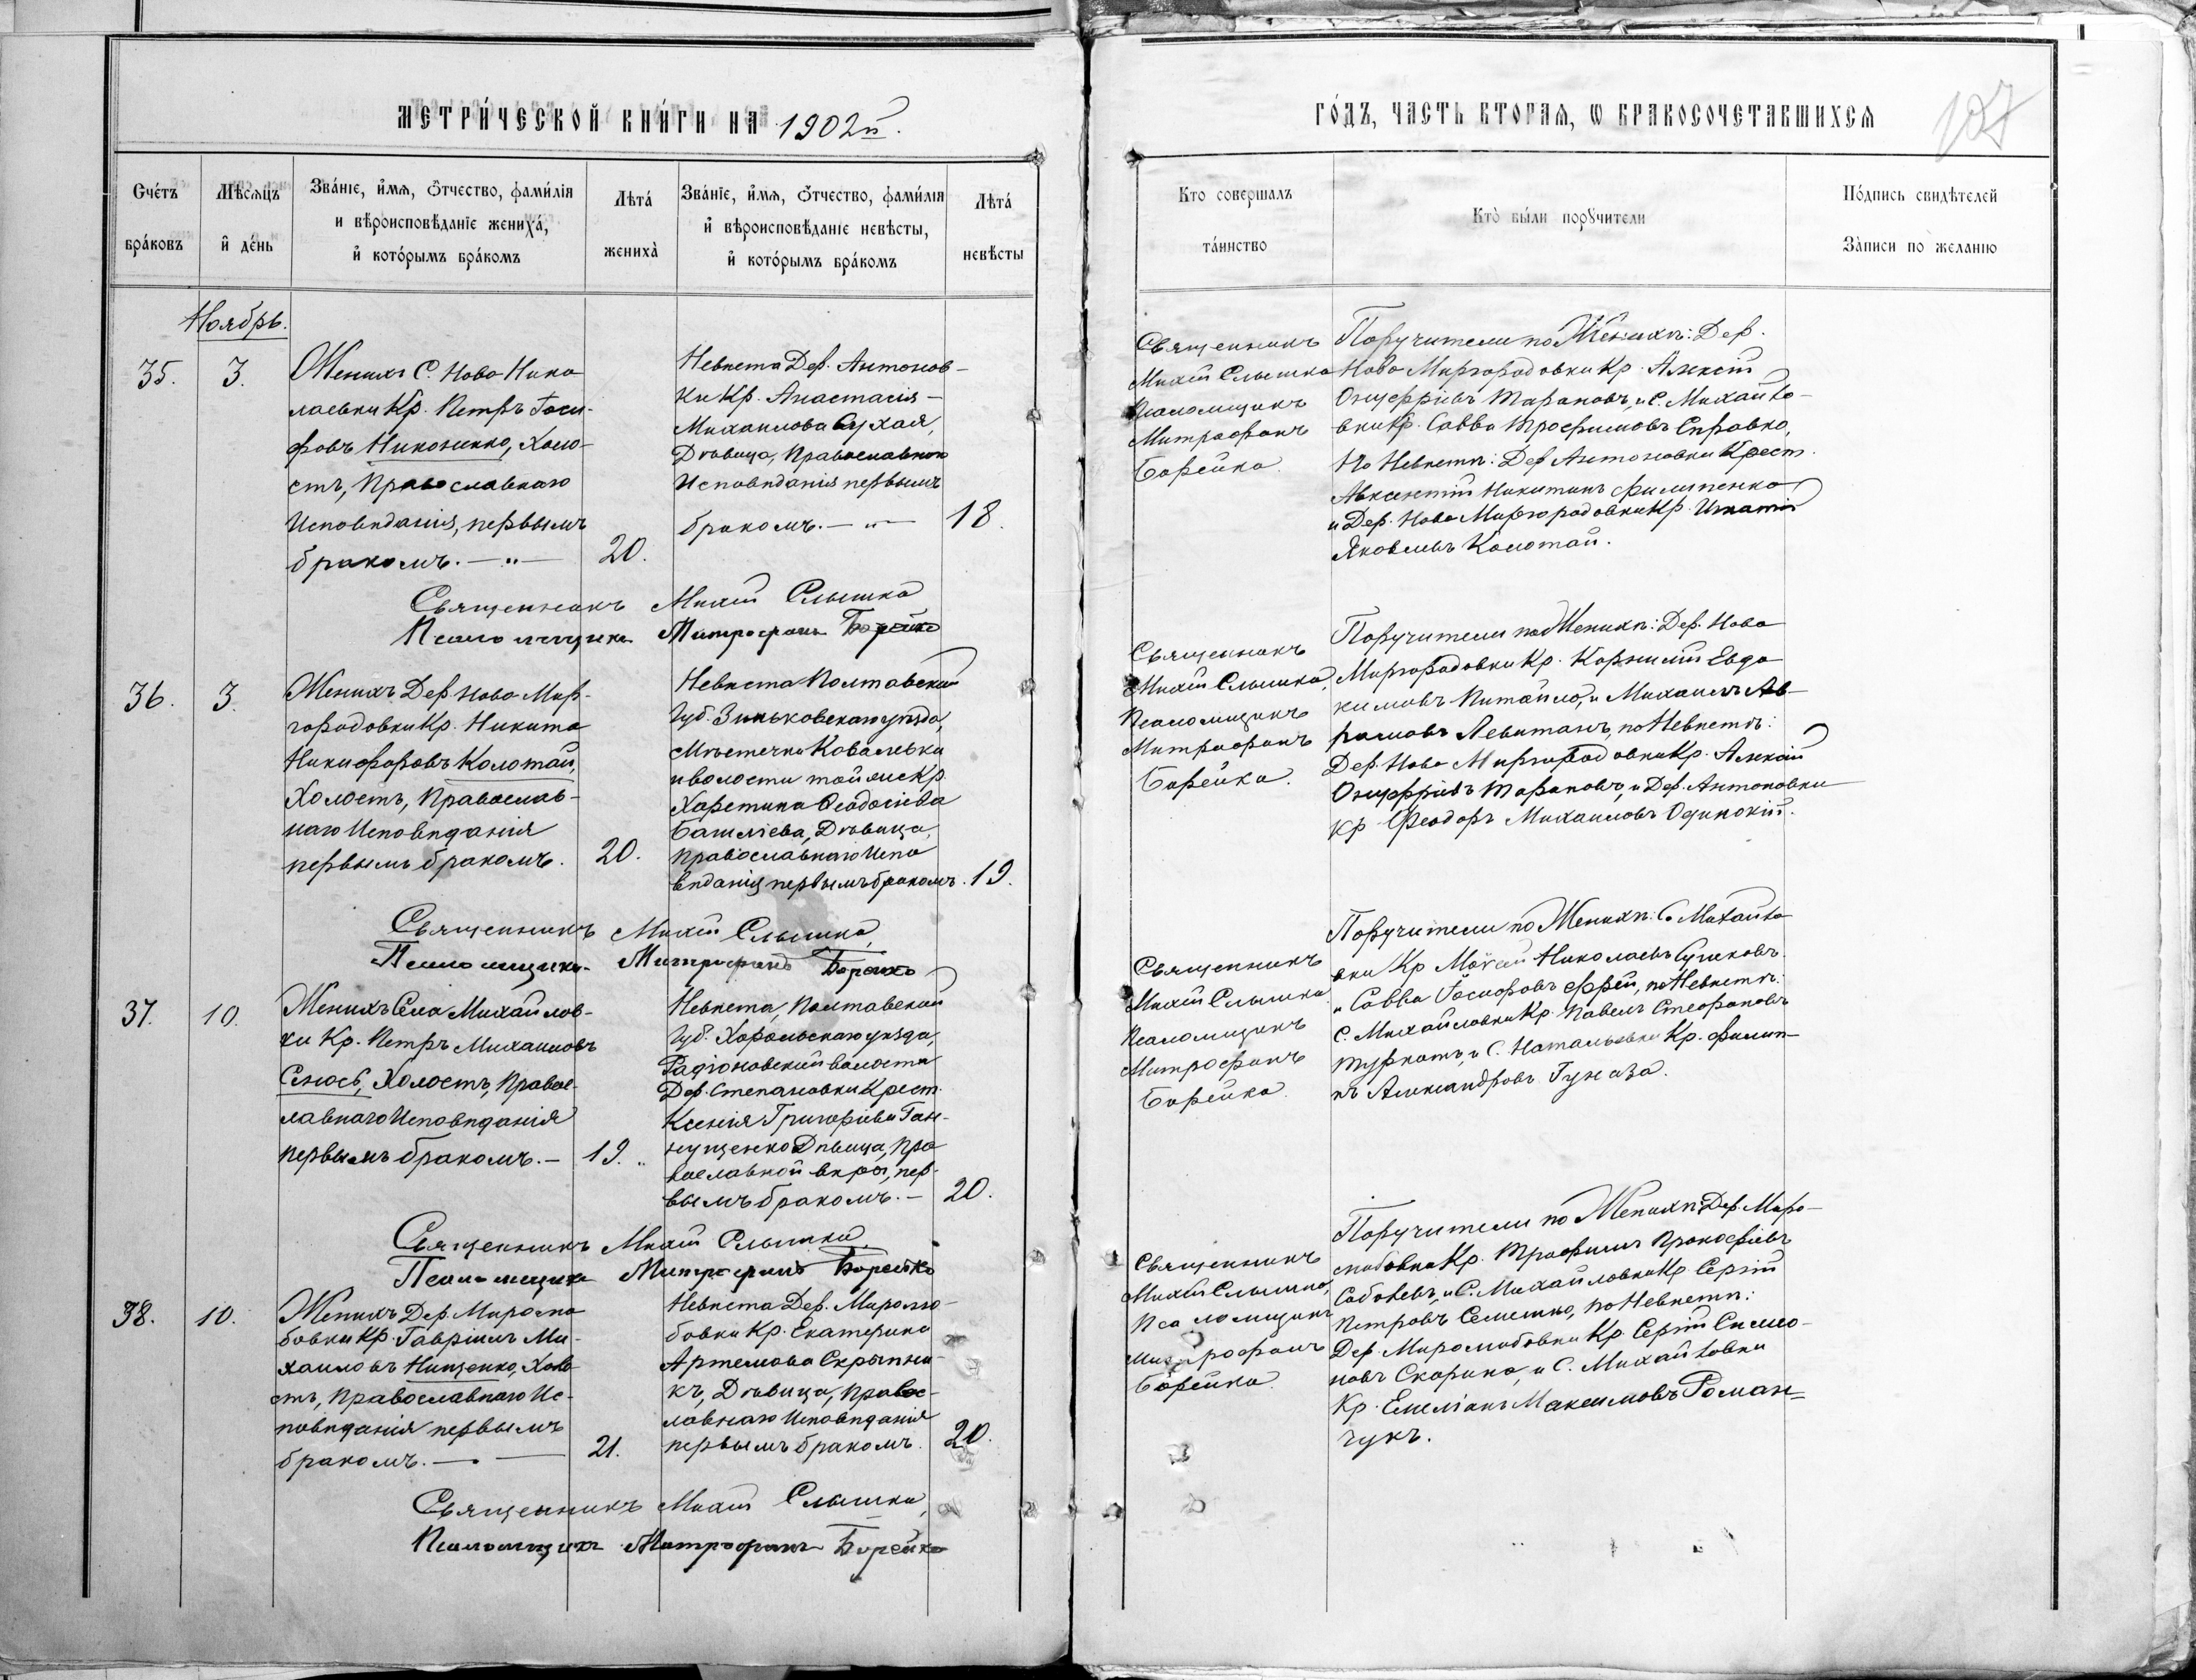 МЕТРИ́ЧЕСКОЙ КНИ́ГИ НА 1902й.
Счéтъ брáковъ
Мѣсяцъ и́ дéнь
Звáніе, и́мя, ѻ́тчество, фами́лія и вѣроисповѣ́даніе женихá, и́ котóрымъ брáкомъ
Лѣтá женихà
Звáніе, и́мя, ѻ́тчество, фами́лія и́ вѣроисповѣ́даніе невѣсты, и́ котóрымъ брáкомъ
Лѣтá невѣсты
Ноябрь.
35.
3.
Женихъ С. Ново Нико
лаевки Кр. Петръ Іоси-
фовъ Никоненко, Холо-
стъ, Православнаго
Исповѣданія, первымъ
бракомъ. — „ —
20.
Невѣста Дер. Антонов-
ки Кр. Анастасія -
Михаилова Сухая,
Дѣвица, Православнаго
Исповѣданія первымъ
бракомъ. — „ —
18.
Священникъ Михаил Слышко
Псаломщикъ Митрофанъ Борейко
36.
3.
Женихъ Дер. Ново Мир-
городовки Кр. Никита
Никифоровъ Колотай,
Холостъ, Православ-
наго Исповѣданія
первымъ бракомъ.
20.
Невѣста Полтавской
Губ. Зиньковскаго уѣзда,
Мѣстечки Ковалевки
и волости той же Кр.
Харетина Ѳеодосіева
Дѣвица,
православнаго Испо
вѣданія первымъ бракомъ.
19.
Священникъ Михаил Слышко,
Псаломщикъ Митрофанъ Борейко
37.
10.
Женихъ Села Михайлов-
ки Кр. Петръ Михаиловъ
Сенось, Холостъ, Правос-
лавнаго Исповѣданія
первымъ бракомъ. —
19. „
Невѣста, Полтавской
Губ. Хорольскаго уѣзда,
Радіоновской волости
Дер. Степановки Крест.
Ксенія Григоріева Ган-
нущенко Дѣвица, Пра
вославной вѣры, пер-
вымъ бракомъ. —
20.
Священникъ Михаил Слышко,
Псаломщикъ Митрофанъ Борейко
38.
10.
Женихъ Дер. Миролю
бовки Кр. Гавріилъ Ми-
хаиловъ Нищенко, Холо
стъ, Православнаго Ис-
повѣданія первымъ
бракомъ. — . —
21.
Невѣста Дер. Миролю-
бовки Кр. Екатерина
Артемова Скрыпни-
къ, Дѣвица, Правос-
лавнаго Исповѣданія
первымъ бракомъ.
20.
Священникъ Михаил Слышко,
Псаломщикъ Митрофанъ Борейко
ГÓДЪ, ЧАСТЬ ВТОРАЯ, Ѡ БРАКОСОЧЕТАВШИХСЯ
127
Кто совершалъ тáинство
Ктò бы́ли порꙋчители
Пóдпись свидѣ́телей Зàписи по желанію
Священникъ
Михаил Слышко
Псаломщикъ
Митрофанъ
Борейко.
Поручители по Женихѣ: Дер.
Ново Миргородовки Кр. Алексѣй
Онуффріевъ Тарановъ, и С. Михайло-
вки Кр. Савва Трофимовъ Справко,
По Невѣстѣ: Дер Антоновки Крест.
Авксентій Никитинъ Филипенко
и Дер. Ново Миргородовки Кр. Игнатій
Яковлевъ Колотай.
Священникъ
Михаил Слышко,
Псаломщикъ
Митрофанъ
Борейко.
Поручители по Женихѣ: Дер. Ново
Миргородовки Кр. Корнилій Евдо
кимовъ Питайло, и Михаилъ Ав-
рамовъ Левитанъ, по Невѣстѣ:
Дер. Ново Миргородовки Кр. Алексѣй
Онуффріевъ Тарановъ, и Дер. Антоновки
Кр Феодоръ Михаиловъ Одинокій.
Священникъ
Михаил Слышко
Псаломщикъ
Митрофанъ
Борейко.
Поручители по Женихѣ: С. Михайло
вки Кр Николаевъ
и Савва Іосифовъ Фрей, по Невѣстѣ:
С. Михайловки Кр. Павелъ Стефановъ
Туркотъ, и С. Натальевки Кр. Филип-
пъ Александровъ Гуназа.
Священникъ
Михаил Слышко,
Псаломщикъ
Митрофанъ
Борейко.
Поручители по Женихѣ: Дер. Миро-
любовки Кр. Трофимъ Прокофіевъ
Соболевъ, и С. Михайловки Кр Сергій
Петровъ Семешко, по Невѣстѣ:
Дер. Миролюбовки Кр. Сергій Симо-
новъ Скорина, и С. Михайловки
Кр. Емеліанъ Максимовъ Роман-
чукъ.